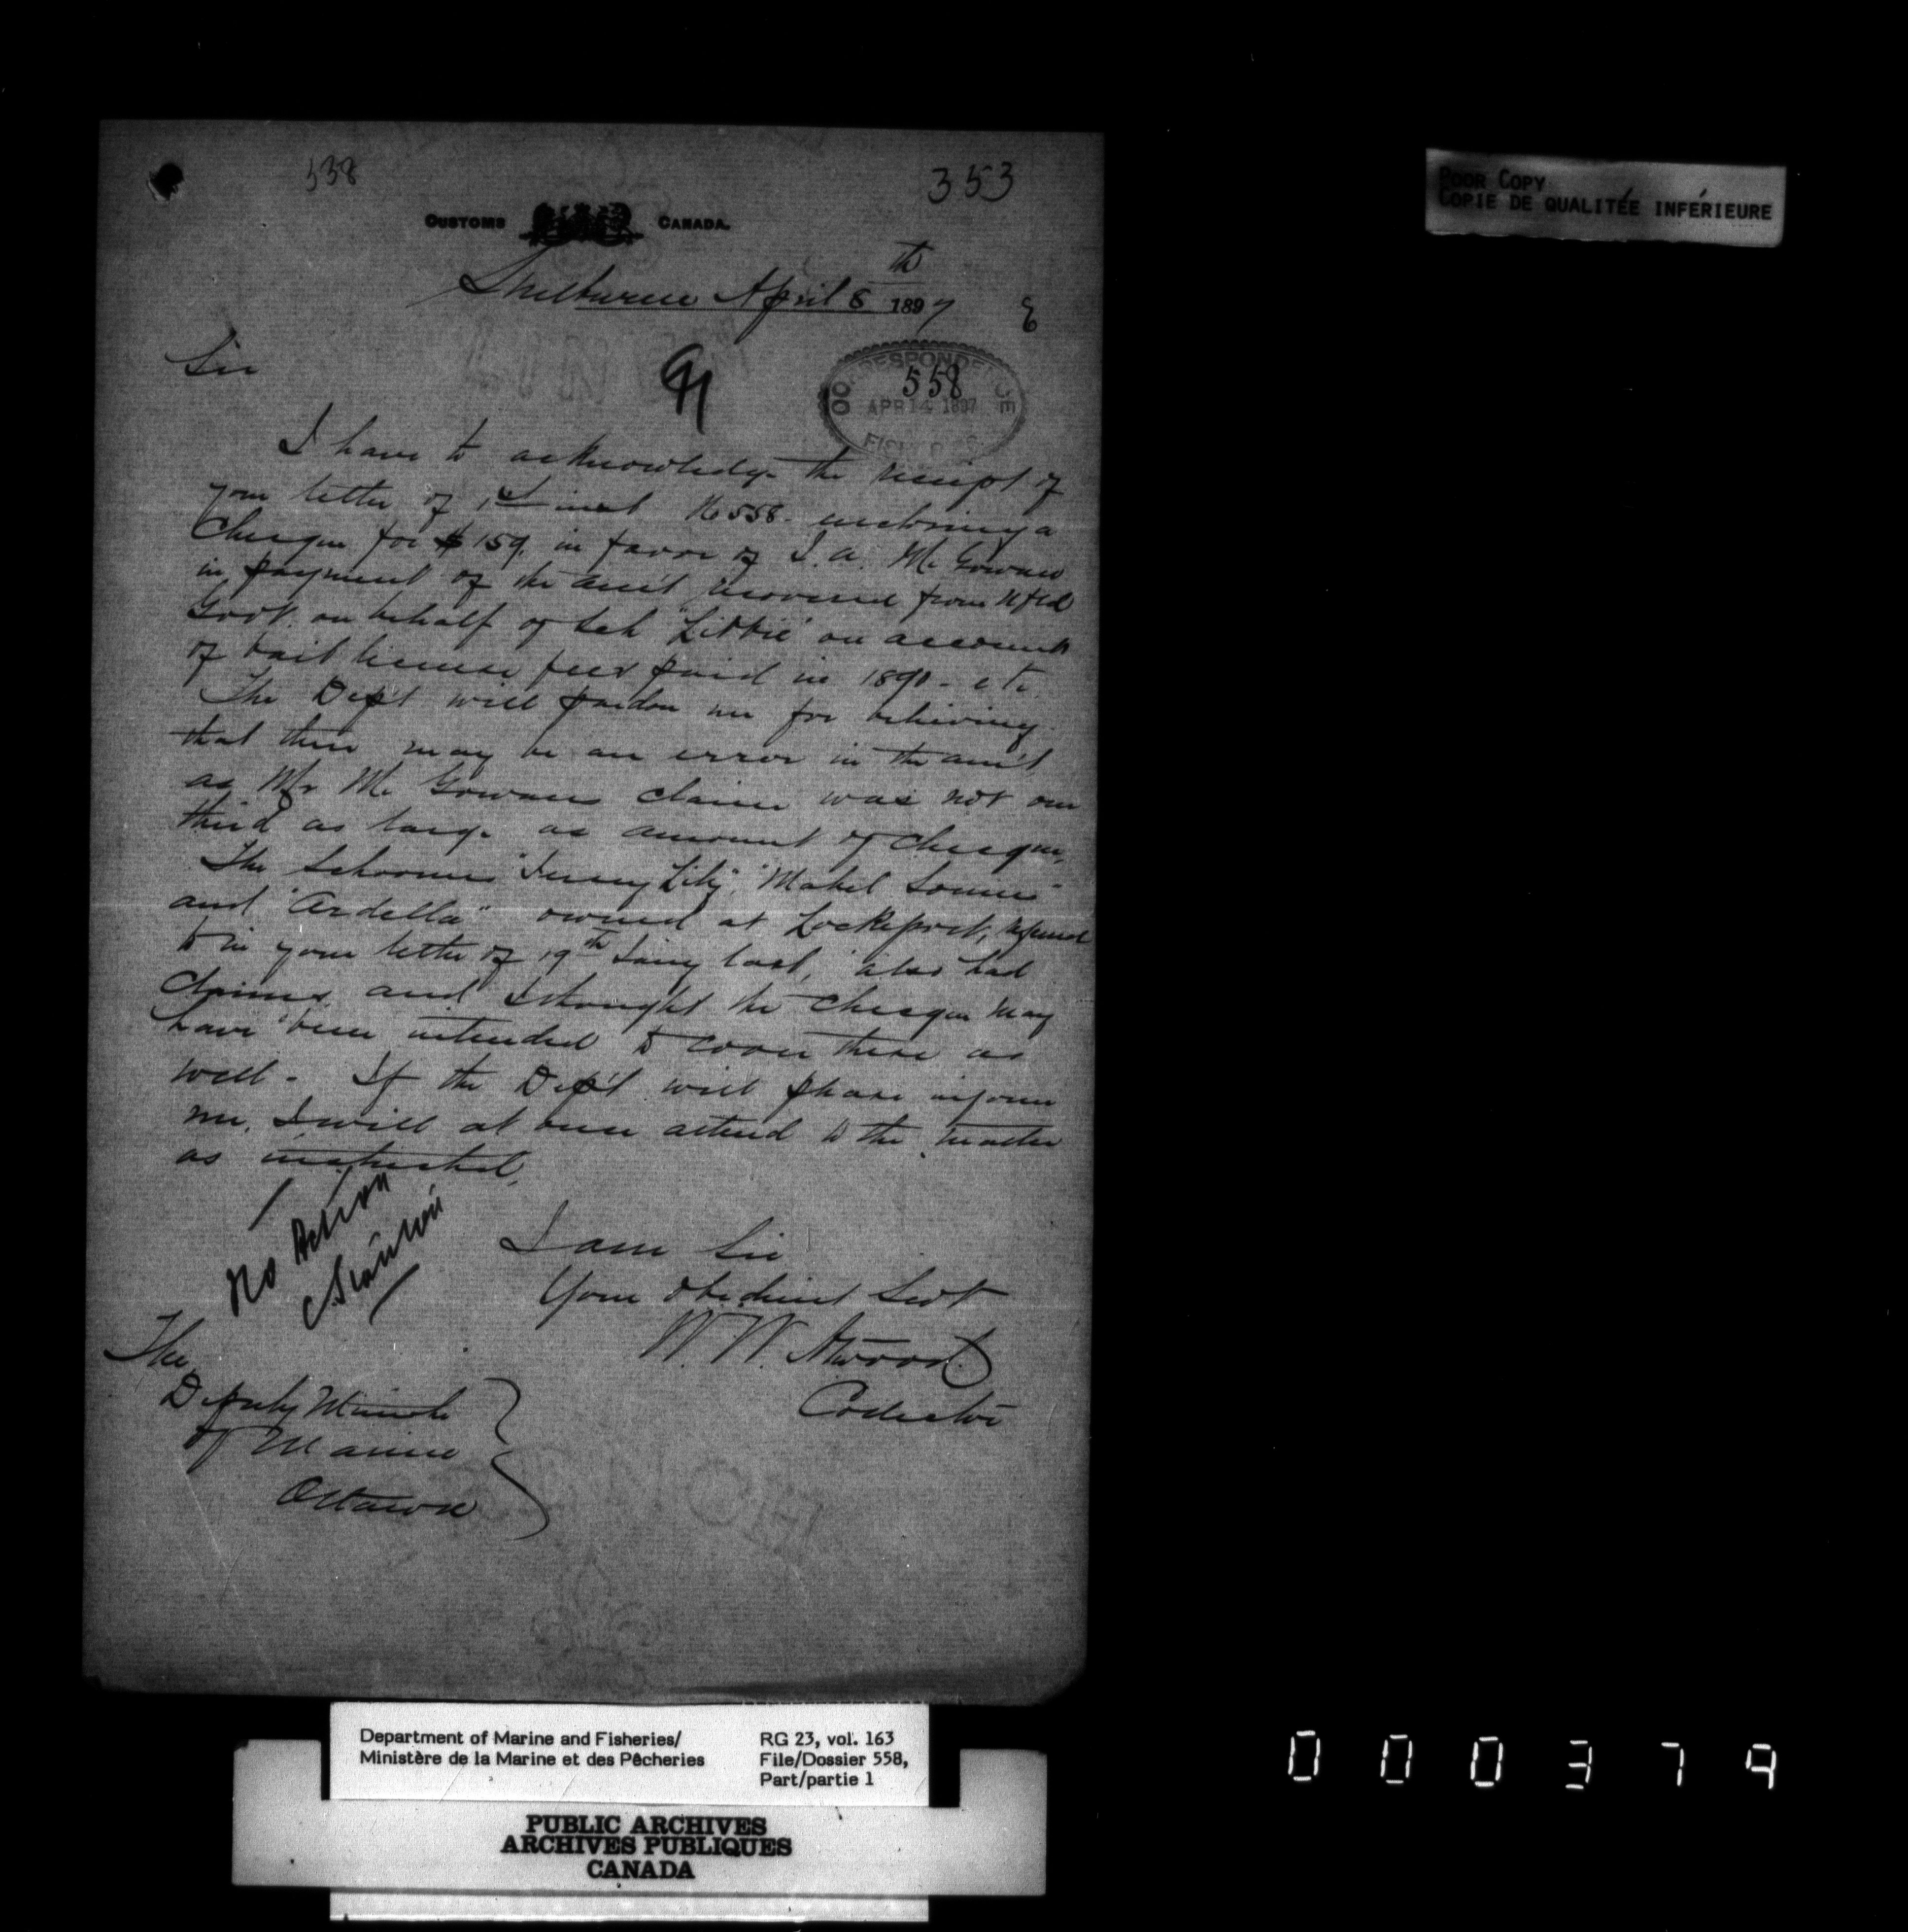 338
353
CUSTOMS CANADA.
Shelburne April 8th 1897
Sir
91
CORRESPONDENCE
558
APR 14 1897
I have to acknowledge the receipt of
your letter of 1st inst No 558. enclosing a
Cheque for $159. in favor of J. A. McGowan
in payment of the am't recovered from Nfld
Govt. on behalf of Sch "Lizzie" on account
of bait license fees paid in 1890 - etc.
The Dep't will pardon me for believing
that there may be an error in the am't
as Mr McGowans claim was not one
third as large as amount of Cheque,
The Schooners "Jenny Lily", "Mabel Somers"
and "Ardella" owned at Lockeport, referred
to in your letter of 19th Jany last, also had
Claims, and I thought the Cheque may
have been intended to cover these as
well - If the Dep't will please inform
me, I will at once attend to the matter
as instructed,
No Action
I am Sir
Your obedient Servt
W. W. Atwood.
Collector
The
Deputy Minister
of Marine
Ottawa
POOR COPY
COPIE DE QUALITÉE INFÉRIEURE
Department of Marine and Fisheries/ RG 23, vol. 163
Ministère de la Marine et des Pêcheries File/Dossier 558,
Part/partie 1
PUBLIC ARCHIVES
ARCHIVES PUBLIQUES
CANADA
000379